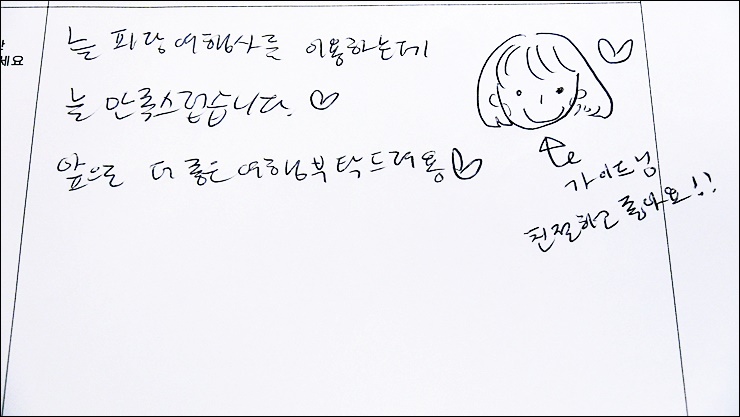 늘 파랑여행사를 이용하는데
늘 만족스럽습니다. ♡
앞으로 더 좋은 여행부탁드려용♡
가이드님
친절하고 좋아요!!
세요